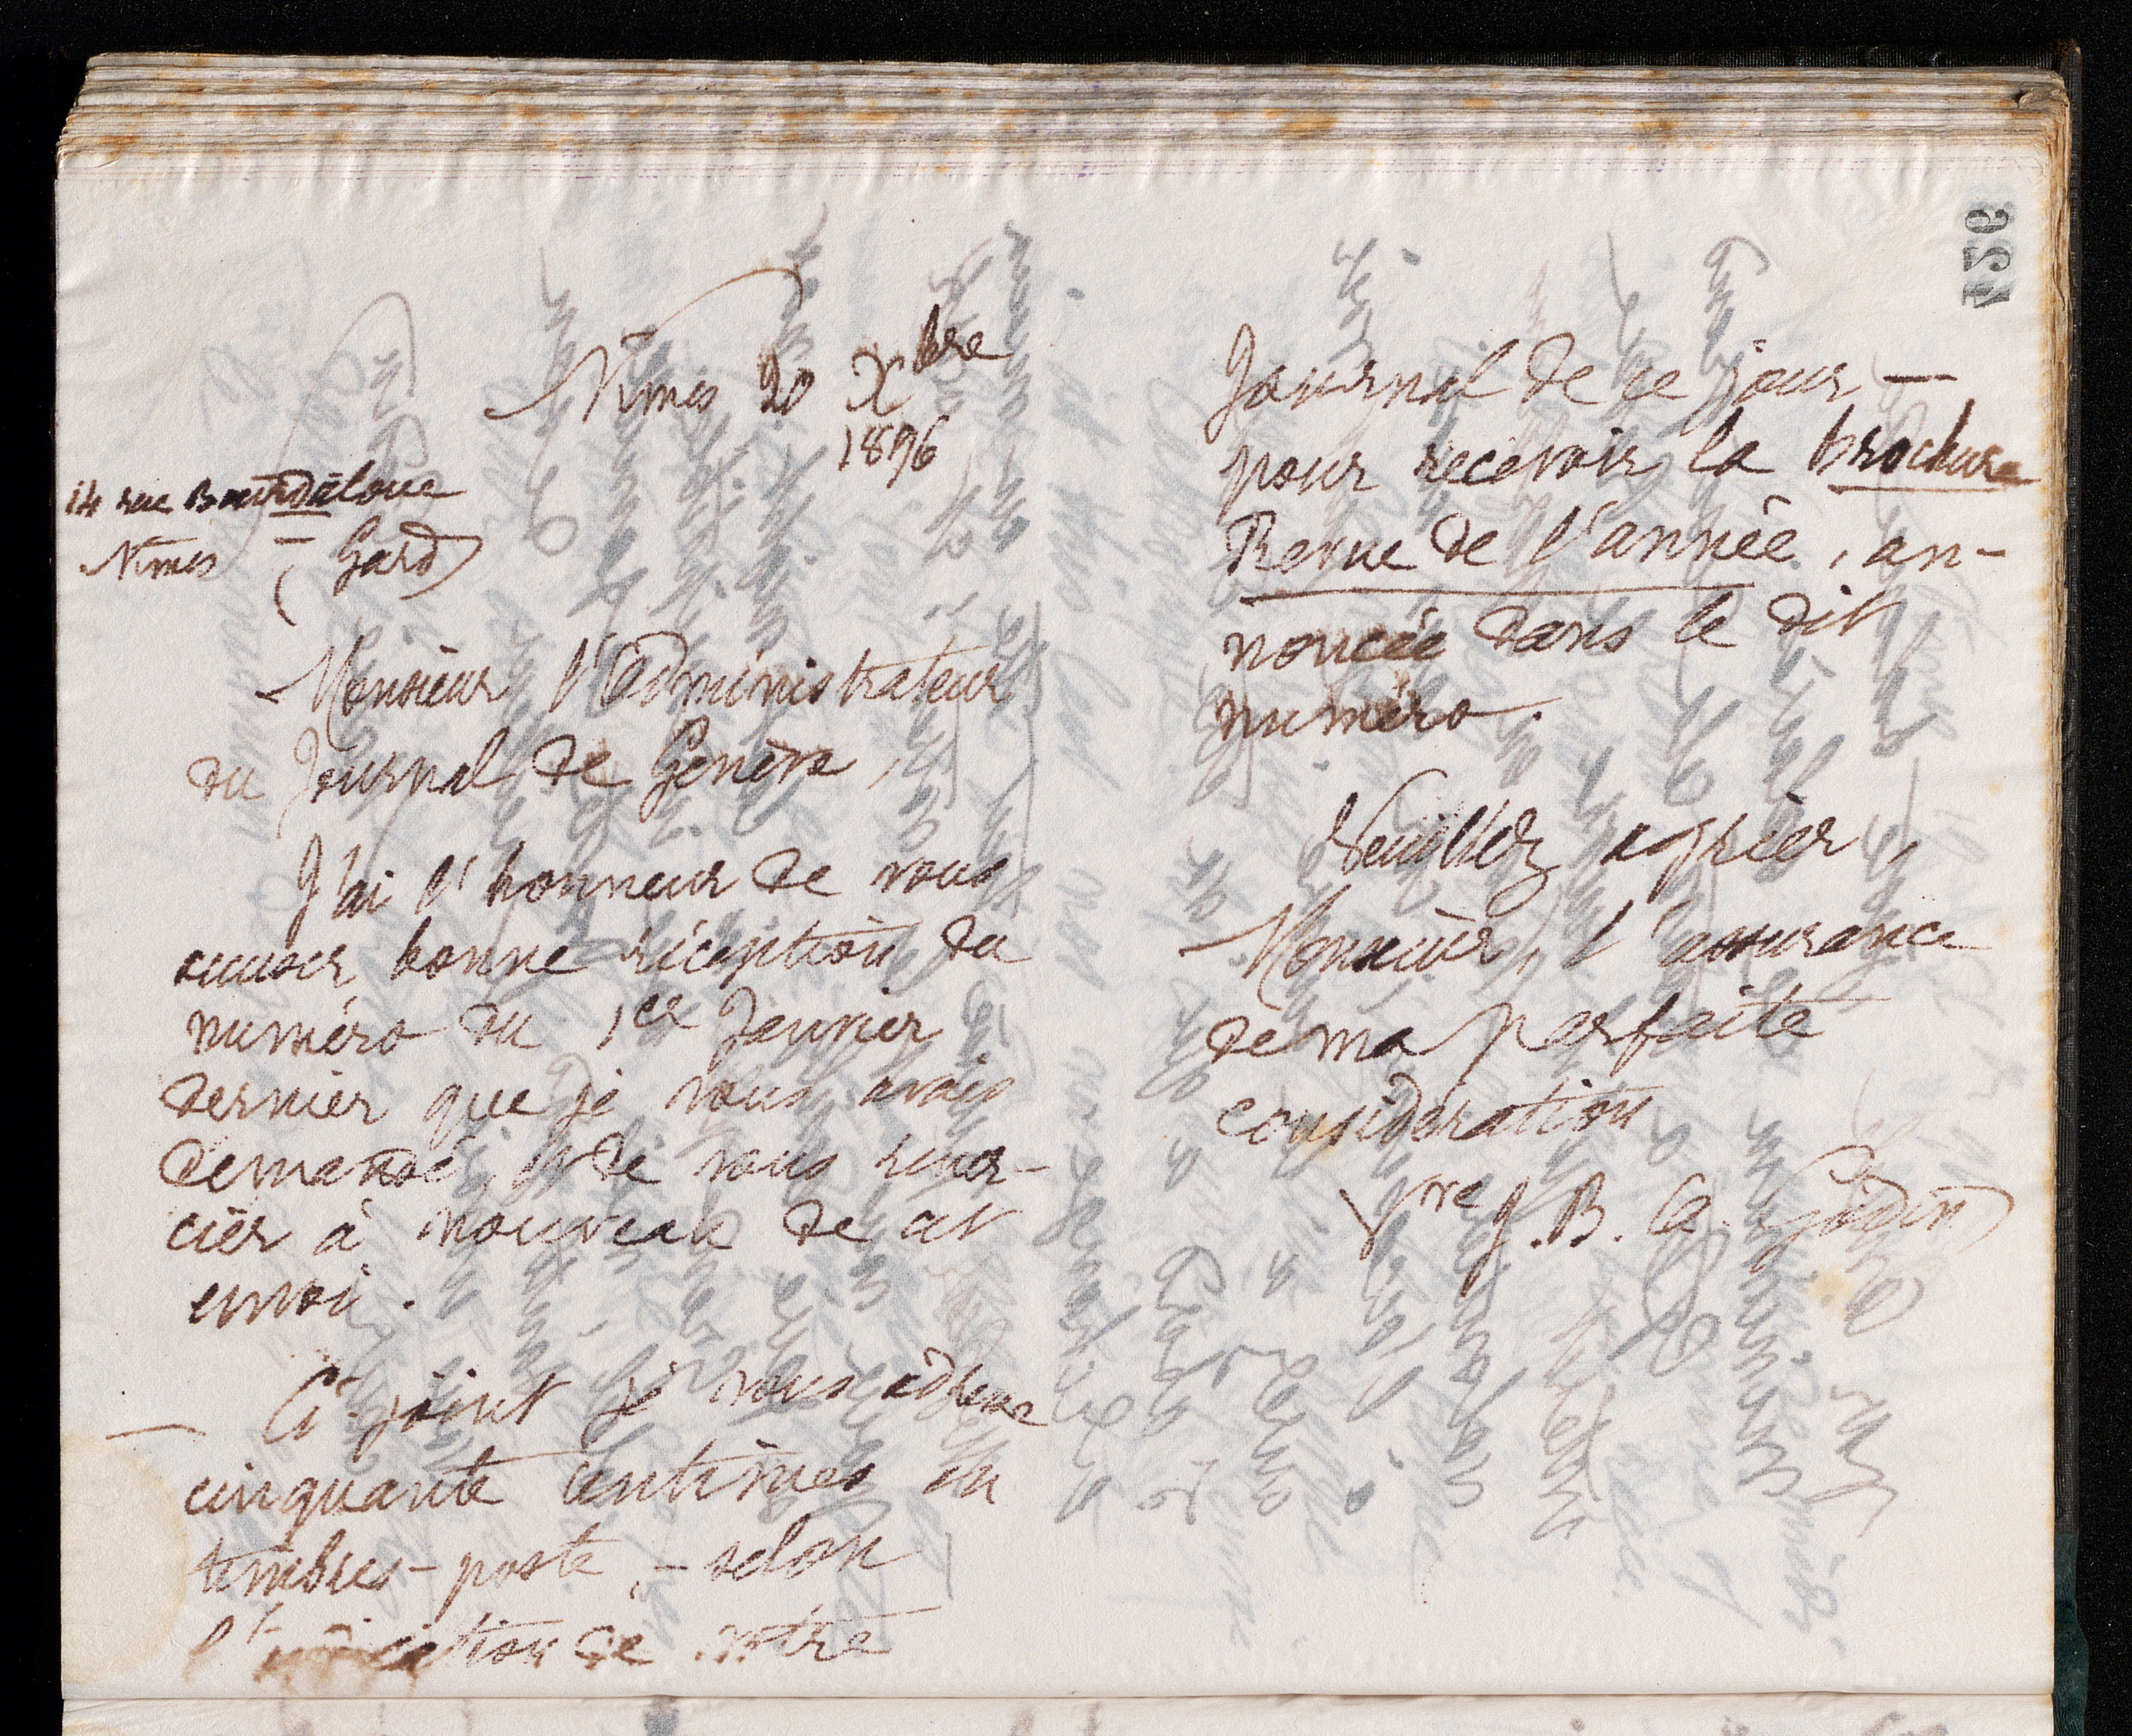 Nîmes 20 Xbre
1896
14 rue Bourdaloue
Nîmes – (Gard)
Monsieur l'administrateur
du Journal de Genève,
J'ai l'honneur de vous
accuser bonne réception du
numéro du 1er Janvier
dernier que je vous avais
demandé, et de vous remer-
cier à nouveau de cet
envoi.
— Ci-joint je vous adresse
cinquante centimes en
timbres-poste, – selon
l'indication de votre
Journal de ce jour —
pour recevoir la brochure
Revue de l'année, an-
noncée dans le dit
numéro.
Veuillez agréer,
Monsieur, l'assurance
de ma parfaite
considération
Vve J. B. A. Godin